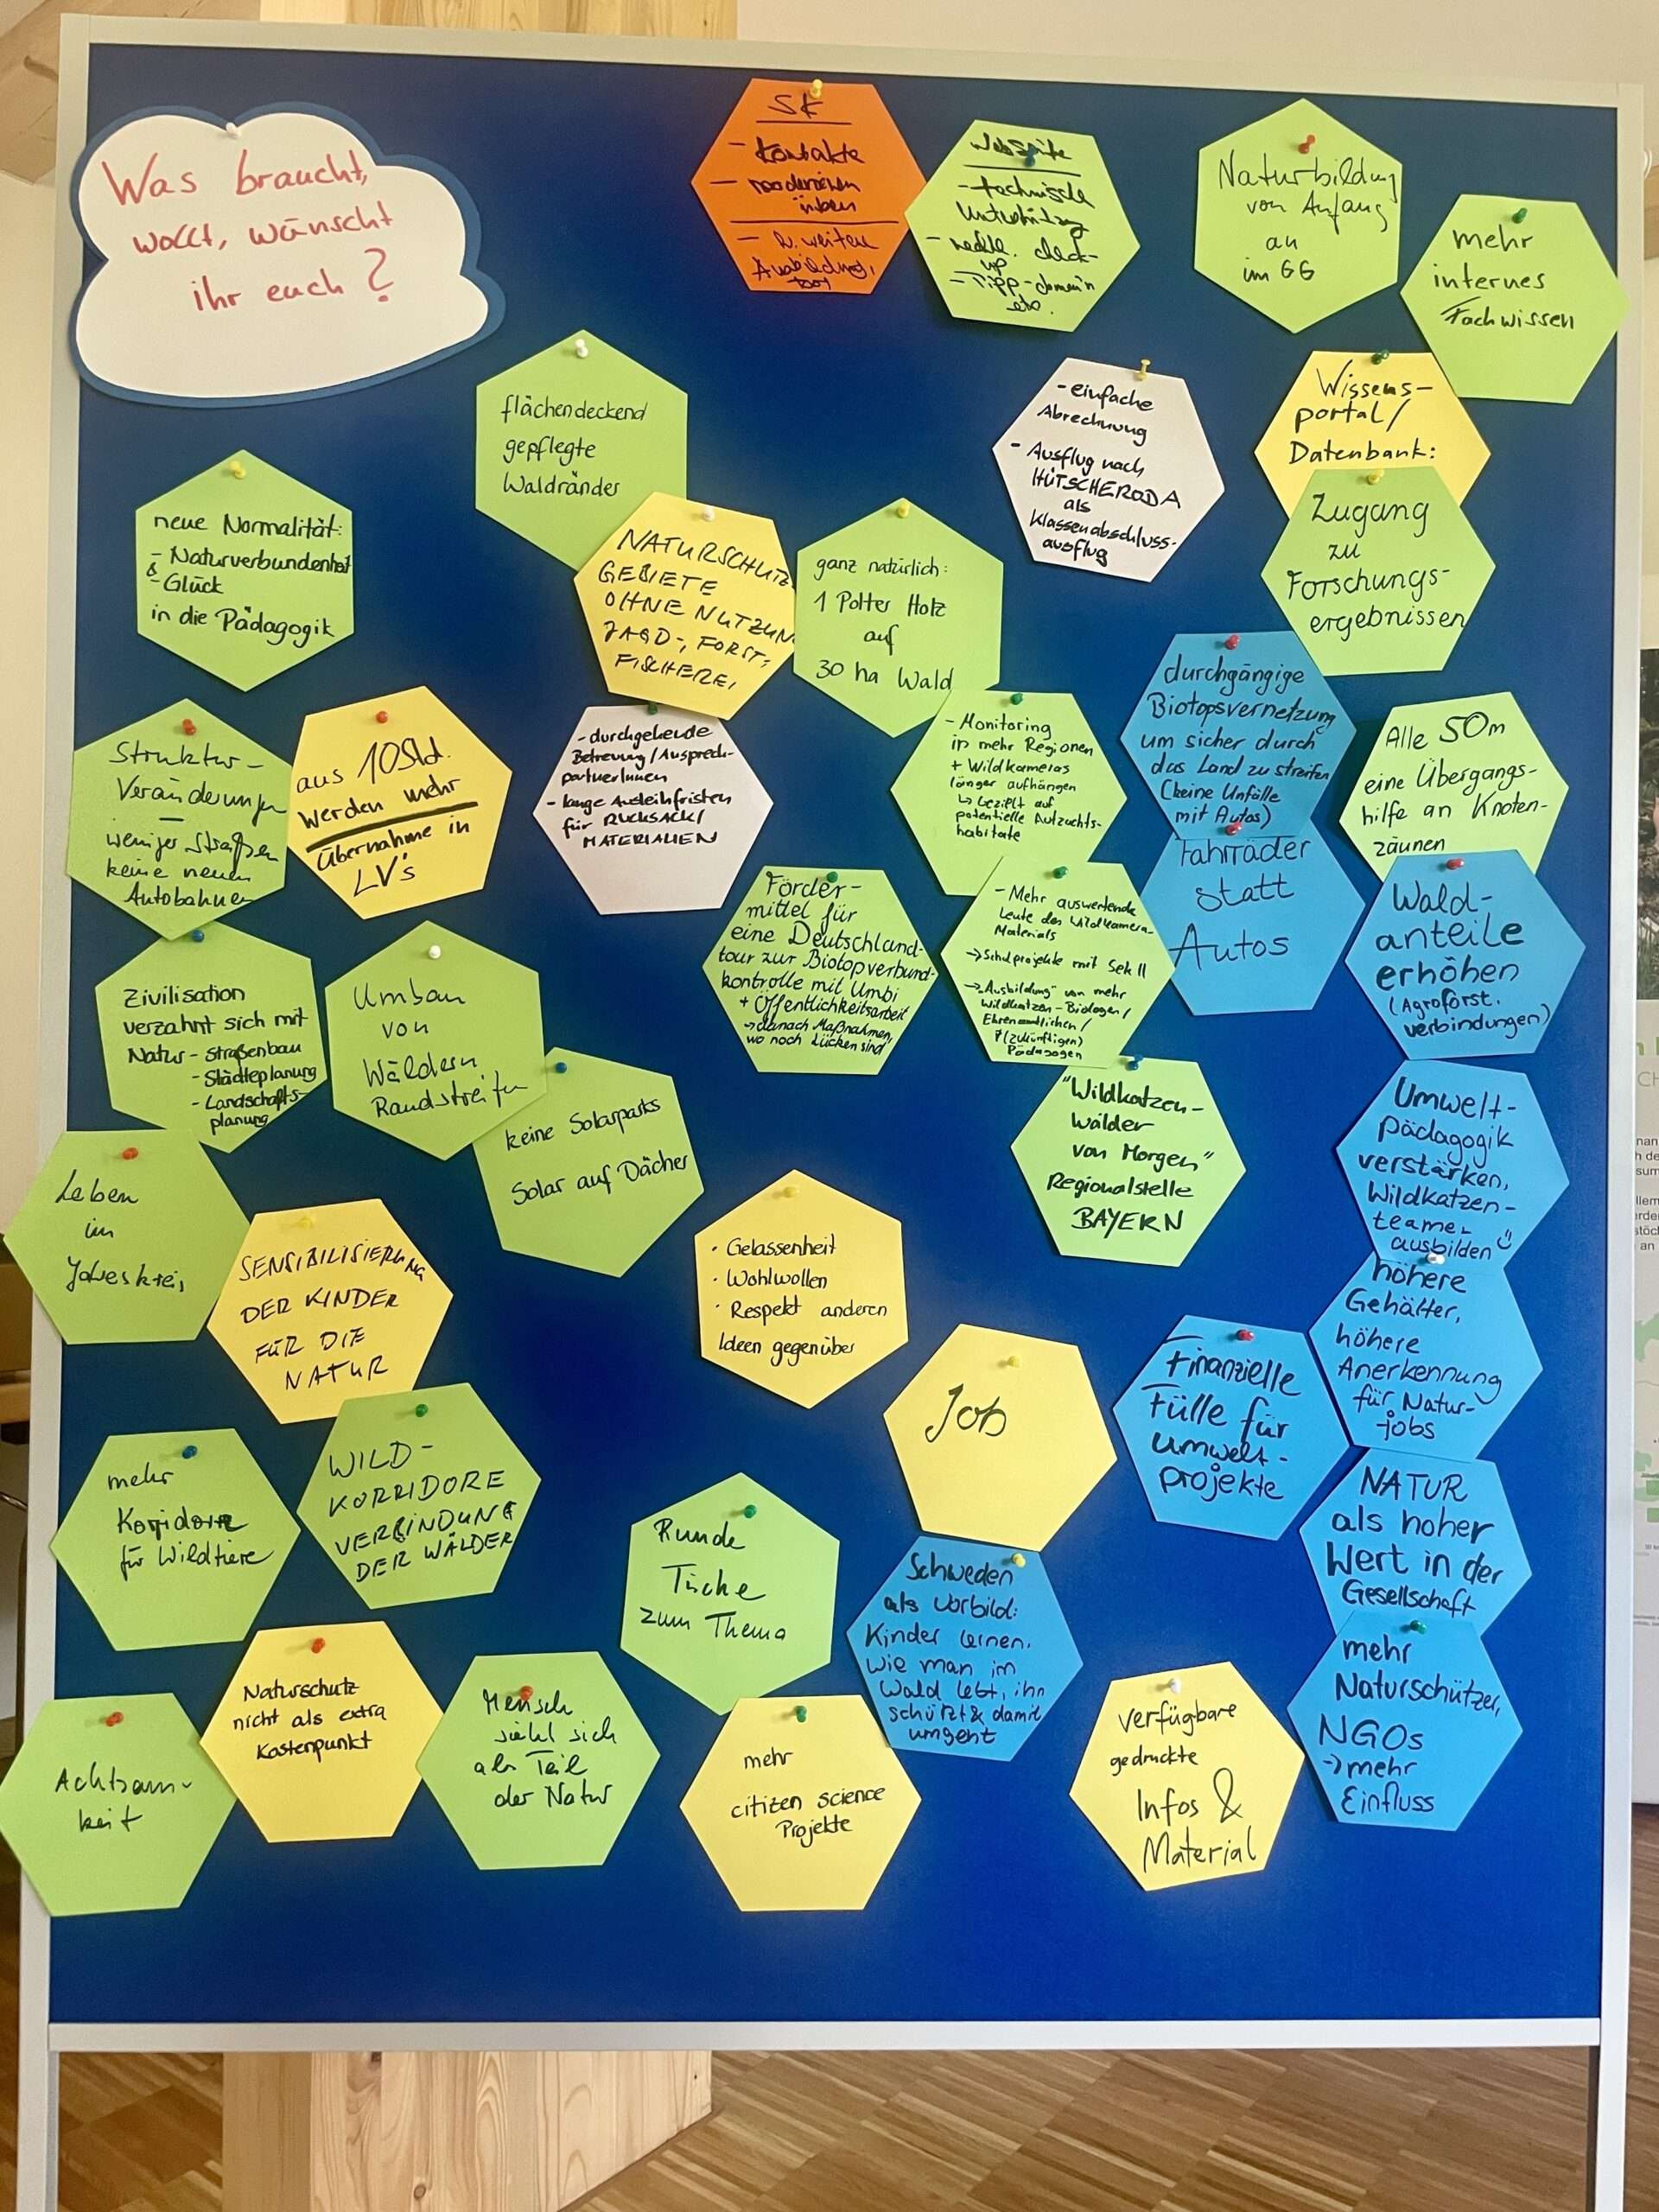 Was braucht,
wollt, wünscht
ihr euch?
SK
- Kontakte
- moderieren
üben
- w. weitere
Ausbildung,
Webseite
- technische
Unterstützung
- rechtl. check-
up
- Tipp-domain
etc.
Naturbildung
von Anfang
an
im GG
mehr
internes
Fachwissen
flächendeckend
gepflegte
Waldränder
- einfache
Abrechnung
- Ausflug nach
HÜTSCHERODA
als
Klassenabschluss-
ausflug
Wissens-
portal/
Datenbank:
Zugang
zu
Forschungs-
ergebnissen
neue Normalität:
- Naturverbundenheit
&
- Glück
in die Pädagogik
NATURSCHUTZ
GEBIETE
OHNE NUTZUN
JAGD-, FORST,
FISCHEREI
ganz natürlich:
1 Polter Holz
auf
30 ha Wald
durchgängige
Biotopsvernetzung
um sicher durch
das Land zu streifen
(keine Unfälle
mit Autos)
Struktur-
Veränderungen
weniger Straßen
keine neuen
Autobahnen
aus 10Std.
werden mehr
Übernahme in
LV's
- durchgehende
Betreuung/Ansprech-
partnerInnen
- lange Ausleihfristen
für RUCKSACK/
MATERIALIEN
- Monitoring
in mehr Regionen
+ Wildkameras
länger aufhängen
↳ gezielt auf
potentielle Aufzuchts-
habitate
Alle 50m
eine Übergangs-
hilfe an Knoten-
zäunen
Fahrräder
statt
Autos
Wald-
anteile
erhöhen
(Agroforst,
verbindungen)
Förder-
mittel für
eine Deutschland-
tour zur Biotopverbund-
kontrolle mit Umbi
+ Öffentlichkeitsarbeit
→ danach Maßnahmen,
wo noch Lücken sind
- Mehr auswertende
Leute des Wildkamera-
Materials
→ Schulprojekte mit Sek II
→ "Ausbildung" von mehr
Wildkatzen-Biologen/
Ehrenamtlichen/
(zukünftigen)
Pädagogen
Zivilisation
verzahnt sich mit
Natur - Straßenbau
- Städteplanung
- Landschafts-
planung
Umbau
von
Wäldern
Randstreifen
keine Solarparks
Solar auf Dächer
"Wildkatzen-
wälder
von Morgen"
Regionalstelle
BAYERN
Umwelt-
Pädagogik
verstärken,
Wildkatzen-
teamer
ausbilden
Leben
im
Jahreskreis
SENSIBILISIERUNG
DER KINDER
FÜR DIE
NATUR
• Gelassenheit
• Wohlwollen
• Respekt anderen
Ideen gegenüber
höhere
Gehälter,
höhere
Anerkennung
für Natur-
jobs
Job
Finanzielle
Fülle für
Umwelt-
projekte
mehr
Korridore
für Wildtiere
WILD-
KORRIDORE
VERBINDUNG
DER WÄLDER
Runde
Tische
zum Thema
NATUR
als hoher
Wert in der
Gesellschaft
Schweden
als Vorbild:
Kinder lernen,
wie man im
Wald lebt, ihn
schützt & damit
umgeht
mehr
Naturschützer,
NGOs
→ mehr
Einfluss
Achtsam-
keit
Naturschutz
nicht als extra
Kostenpunkt
Mensch
sieht sich
als Teil
der Natur
mehr
citizen science
Projekte
verfügbare
gedruckte
Infos &
Material